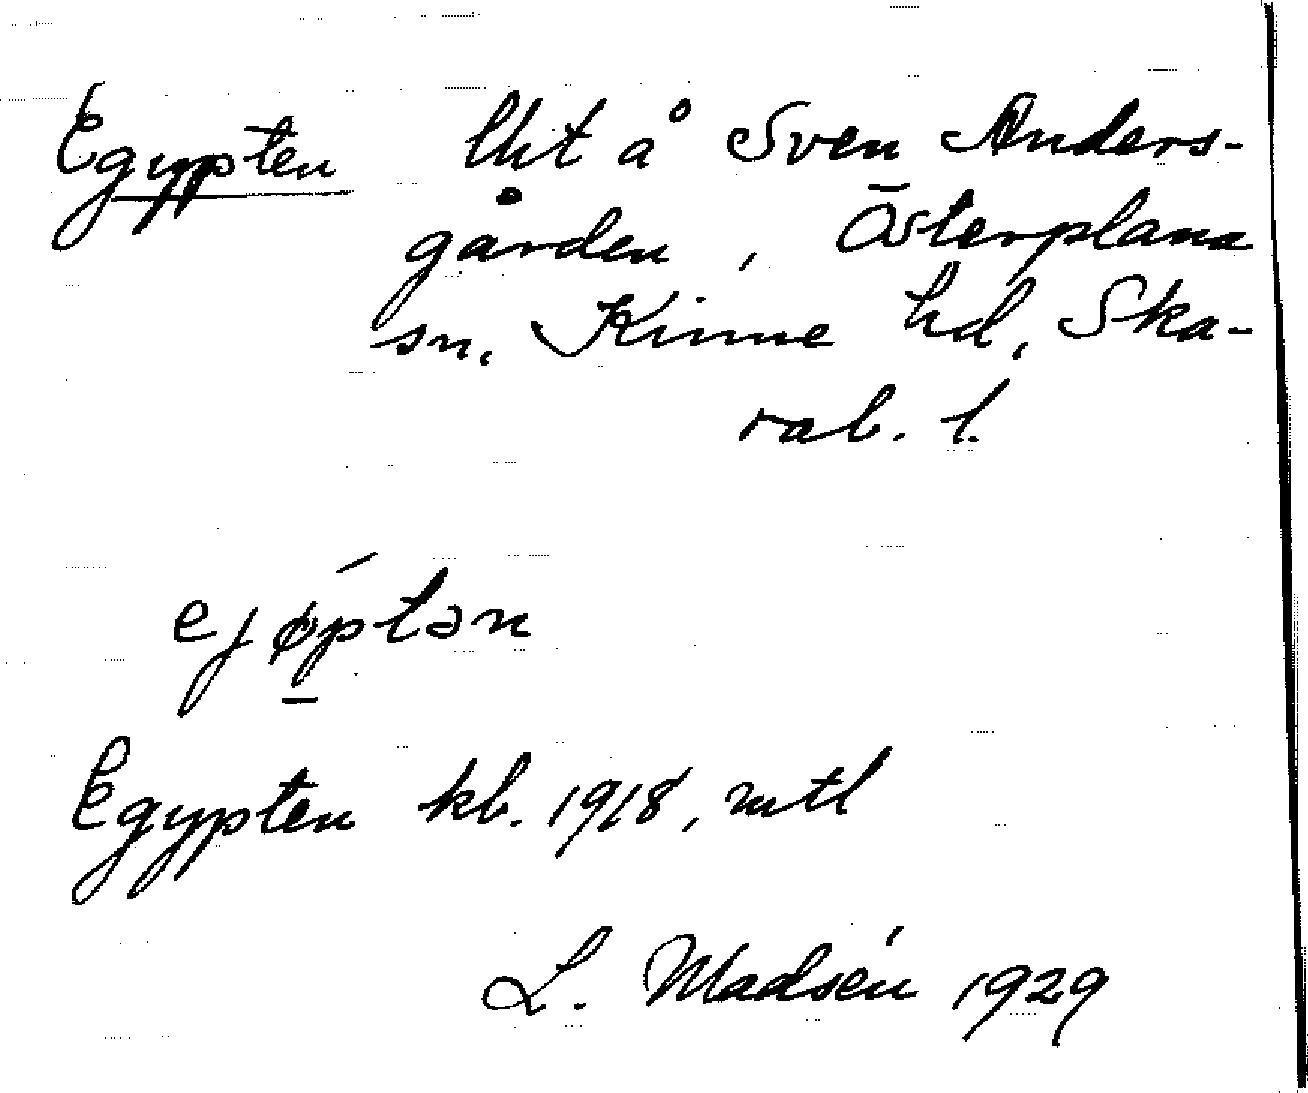 Egypten lht å Sven Anders-
gården, Österplana
sn, Kinne hd, Ska-
rab. l.
ejøptən
Egypten kb. 1918, mtl
L. Madsén 1929